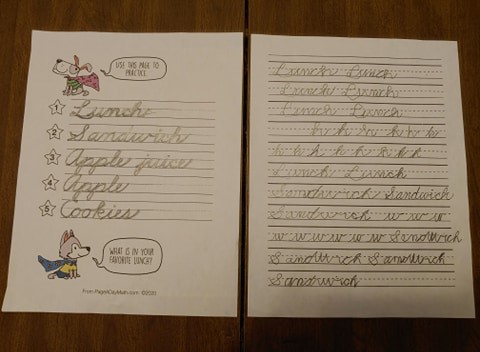 USE THIS PAGE TO
PRACTICE.
1 Lunch
2 Sandwich
3 Apple juice
4 Apple
5 Cookies
WHAT IS IN YOUR
FAVORITE LUNCH?
From PagesOCayMath.com ©2020
Lunch Lunch
Lunch Lunch
Lunch Lunch
h h h h h h
h h h h h h h h
Lunch Lunch
Sandwich Sandwich
Sandwich w w w
w w w w w w Sandwich
Sandwich Sandwich
Sandwich